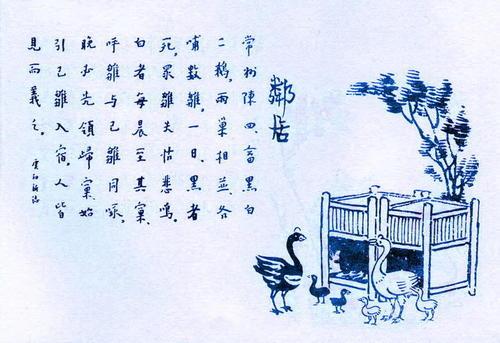 鄰居
常州陳四畜黑白
二鵝,兩巢相並各
哺數雛。一日,黑者
死。眾雛失怙悲鳴。
白者每晨至其窠,
呼雛與己雛同啄,
晚必先領歸窠,始
引己雛入宿人皆
見而義之。